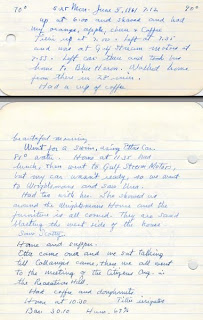 70° 5 at Mon. June 5, 1961 7:12 80°
up at 6:00 and shaved and had
my orange, apple, cheese & coffee
Left at 7:35
and was at Gulf Stream Motors at
7:55 Left car there and took bus
home to Blue Heron. Walked home
from there in 28 min.
Had a cup of coffee
beautiful morning.
Went for a swim, using Etta's Car.
80° water. Home at 11:35 Had
lunch, then out to Gulf Stream Motors,
but my car wasn't ready, so we went
to
Had tea with her. She showed us
around the Neighborhood House and the
furniture is all covered. They are sand
blasting the west side of the house.
Home and coffee.
Etta came over and we sat talking
till came, then we all went
to the meeting of the Citizens Org. in
the Recreation Hall
Had coffee and doughnuts
Home at 10:30
Bar. 30.10 Hum. 67%